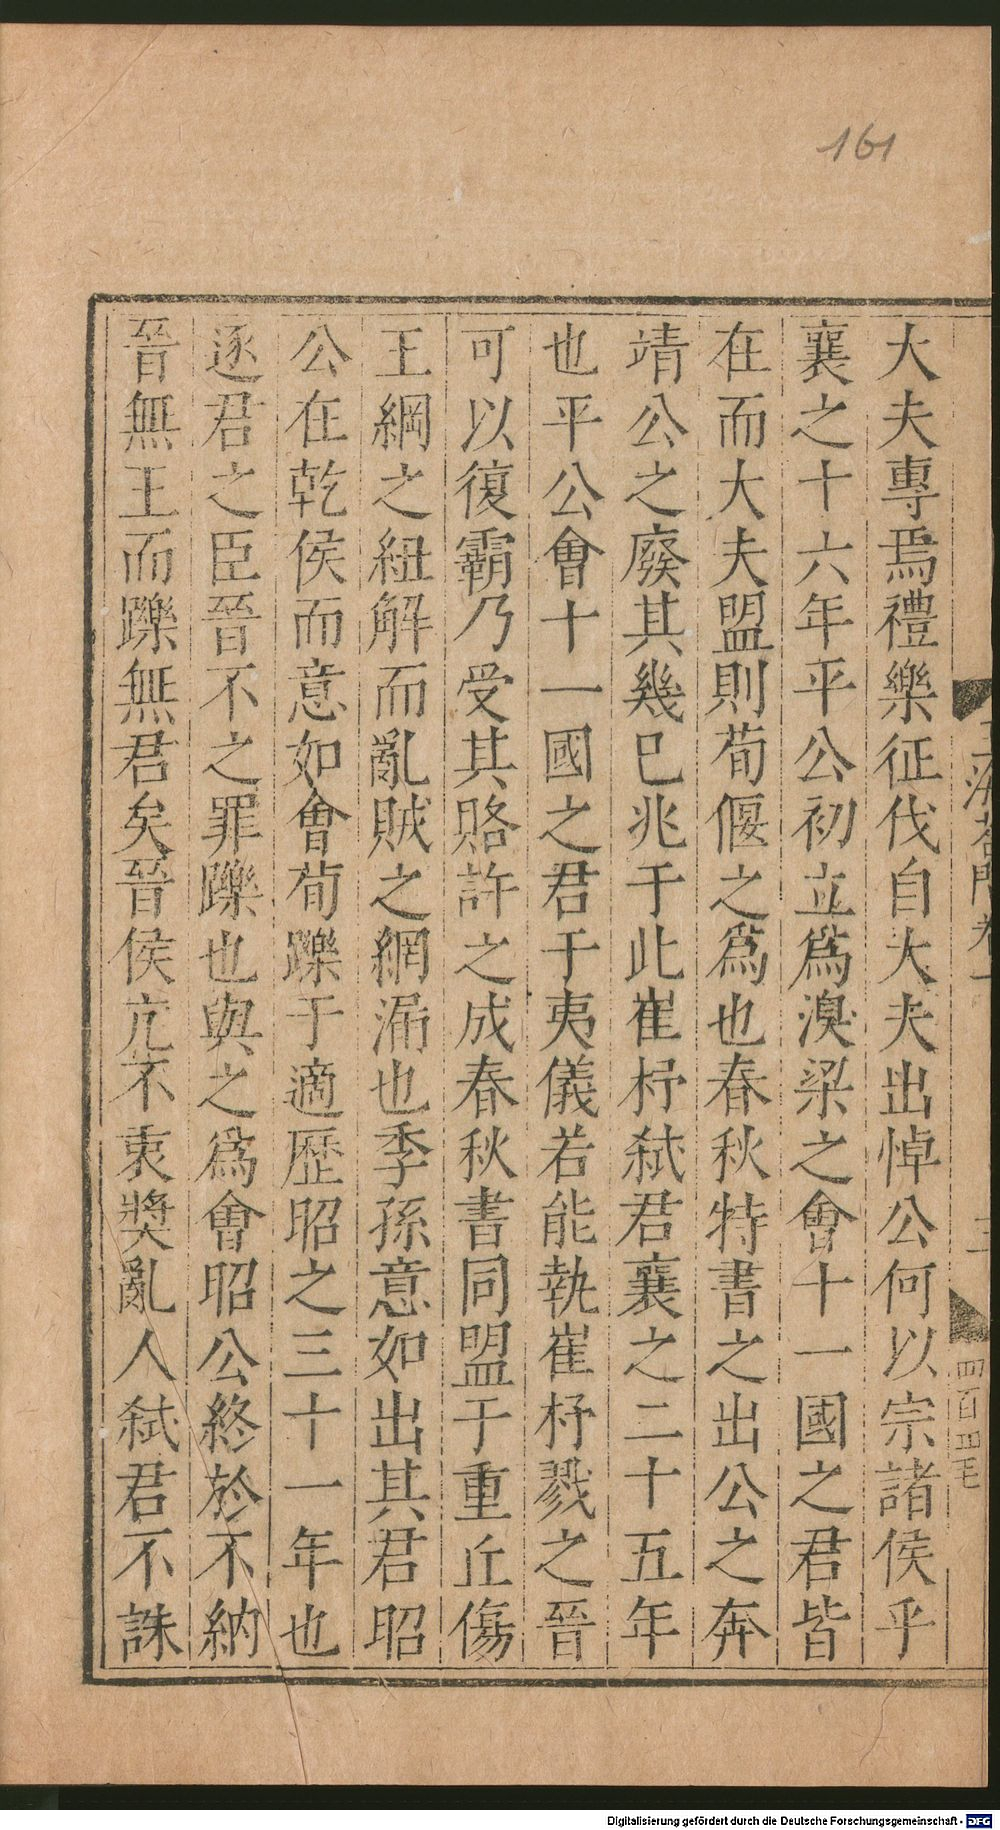 161
大夫專焉禮樂征伐自大夫出悼公何以宗諸侯乎
襄之十六年平公初立爲溴梁之會十一國之君皆
在而大夫盟則荀偃之爲也春秋特書之出公之奔
靖公之廢其幾已兆于此崔杼弑君襄之二十五年
也平公會十一國之君于夷儀若能執崔杼戮之晉
可以復霸乃受其賂許之成春秋書同盟于重丘傷
王綱之紐解而亂賊之網漏也季孫意如出其君昭
公在乾侯而意如會荀躒于適歷昭之三十一年也
逐君之臣晉不之罪躒也與之爲會昭公終於不納
晉無王而躒無君矣晉侯亢不衷奬亂人弑君不誅
答問卷一
四百四毛
Digitalisierung gefördert durch die Deutsche Forschungsgemeinschaft - DFG